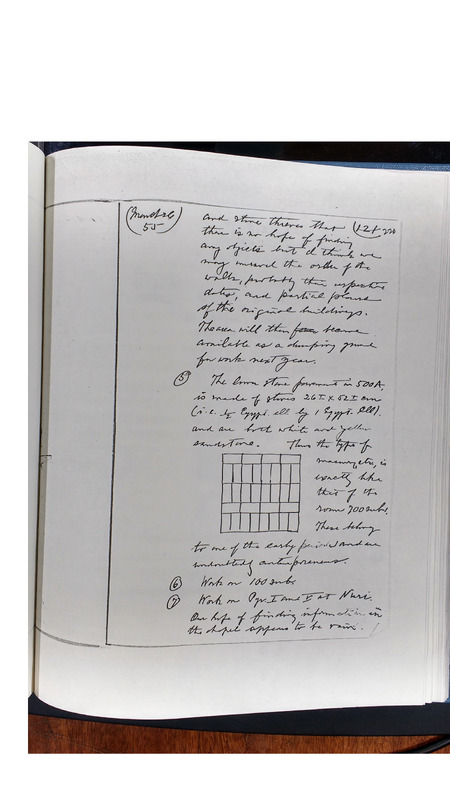 and stone thieves that
there is no hope of finding
any objects but I think we
may unravel the order of the
walls, probably their respective
dates, and partial plans
of the original buildings.
The area will then become
available as a dumping ground
for work next year.
(5) The lower stone pavement in 500A,
is made of stones 26 x 52 cm
(i.e. ½ Egypt. ell by 1 Egypt. ell).
and are both white and yellow
sandstone. Thus the type of
masonry etc, is
exactly like
that of the
rooms 700 subs.
These belong
to one of the early periods and are
undoubtedly
(6) Work on 100 subs
(7) Work on Pyr. I and V at Nuri.
Our hope of finding information in
the chapel appears to be vain.